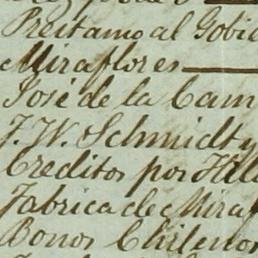 Prestamo al Gobi
Miraflores
José de la Cam
F. W. Schmidt y
Creditos por
Fabrica de Miraf
Bonos Chilenos